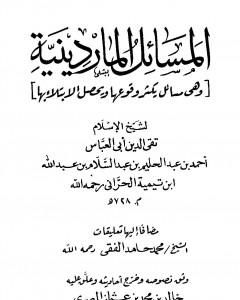 المسائل الماردينية
[وهى مسائل يكثر وقوعها ويحصل الابتلاء بها]
لشيخ الإسلام
تقى الدين أبى العباس
أحمد بن عبد الحليم بن عبد السلام بن عبد الله
ابن تيمية الحرانى رحمه الله
م. ٧٢٨هـ
مضافًا إليها تعليقات
الشيخ / محمد حامد الفقى رحمه الله
وثق نصوصه وخرج أحاديثه وعلق عليه
خالد بن محمد بن عثمان المصرى